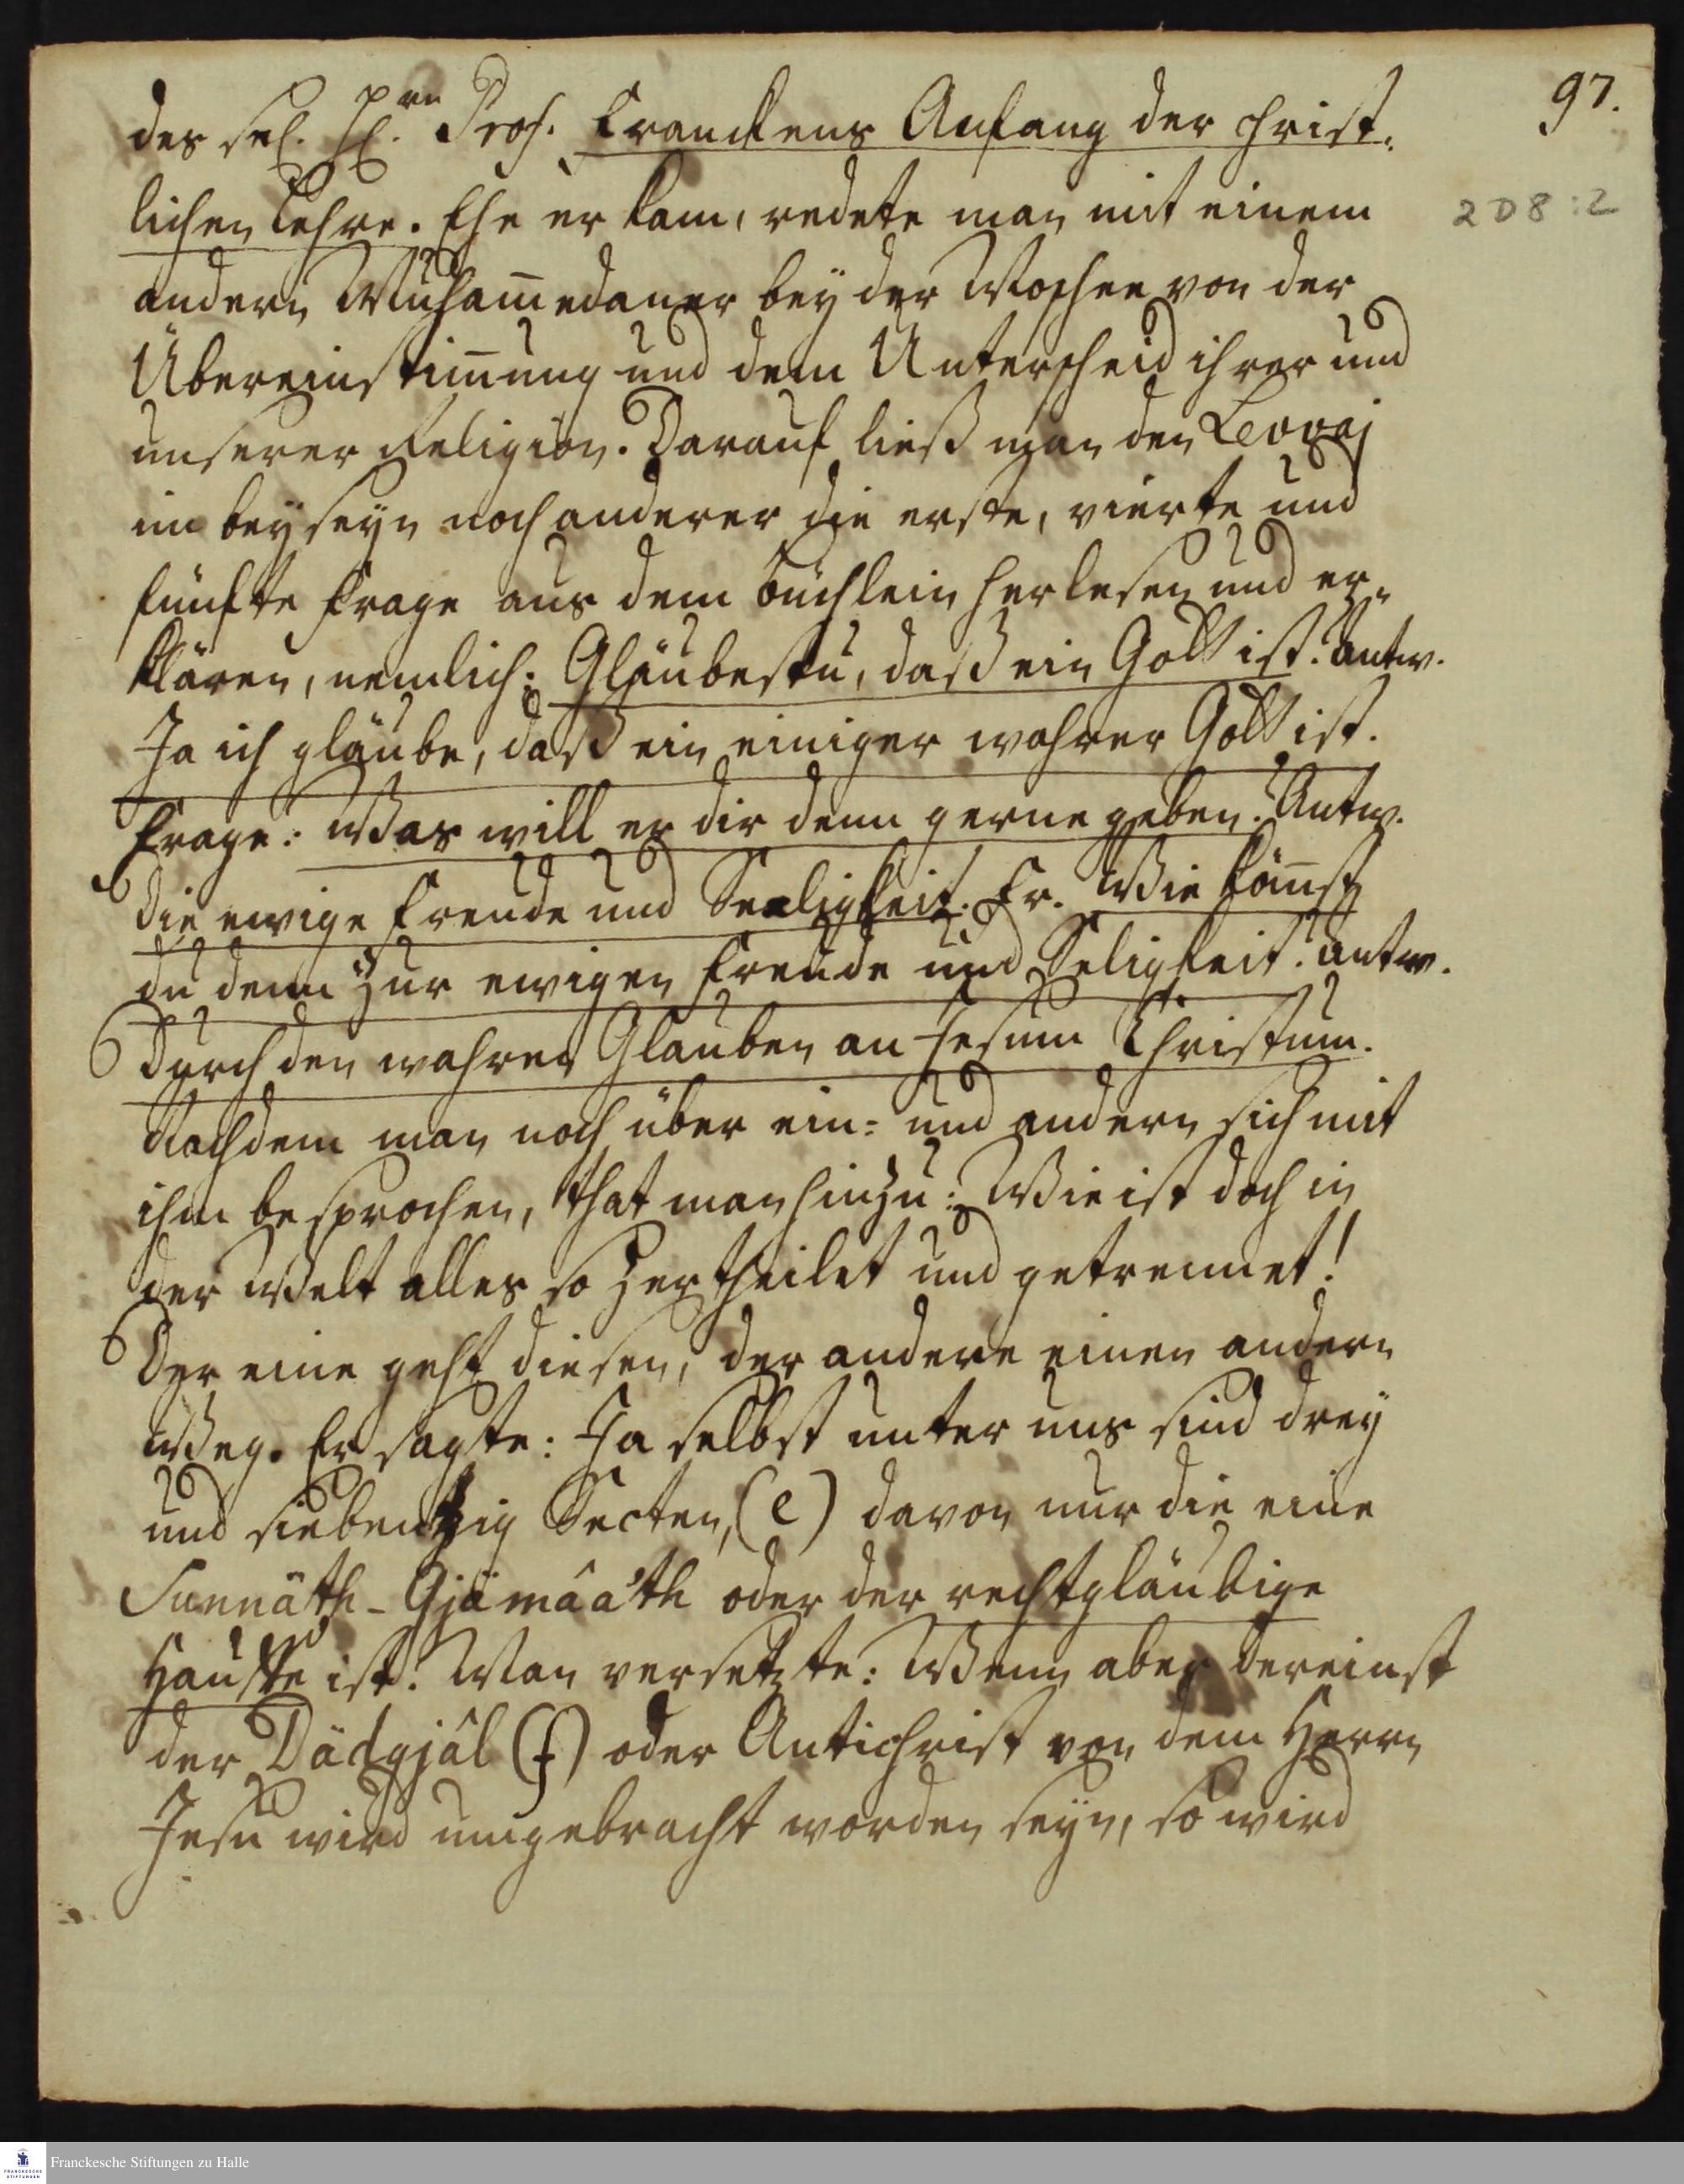 97.
des sel. H.rn Prof. Franckens Anfang der christ-
2 D 8 : 2
lichen Lehre. Ehe er kam, redete man mit einem
andern Muham̅edaner bey der Moschee von der
Übereinstim̅ung und dem Unterscheid ihrer und
unserer Religion. Darauf ließ man den Levvaj
im beyseyn noch anderer die erste, vierte und
fünfte Frage aus dem büchlein herlesen und er-
klären, nemlich: Gläubestu, daß ein Gott ist? Antw.
Ja ich gläube, daß ein einiger wahrer Gott ist.
Frage: Was will er dir denn gerne geben? Antw.
Die ewige Freude und Seeligkeit. Fr. Wie köm̅st
du denn zur ewigen Freude und Seligkeit? Antw.
Durch den wahren Glauben an Jesum Christum.
Nachdem man noch über ein- und andern sich mit
ihm besprochen, that man hinzu: Wie ist doch in
der Welt alles so zertheilet und getrennet!
Der eine geht diesen, der andere einen andern
Weg. Er sagte: Ja selbst unter uns sind drey
und siebentzig Secten, (e) davon nur die eine
Sunnäth-Gjämâa'th oder der rechtgläubige
Hauffe ist. Man versetzte: Wenn aber dereinst
der Dädgjâl (f) oder Antichrist von dem Herrn
Jesu wird umgebracht worden seyn, so wird
Franckesche Stiftungen zu Halle